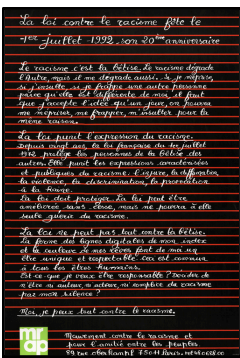 La loi contre le racisme fête le
1er juillet 1992, son 20ème anniversaire
Le racisme c'est la bêtise. Le racisme dégrade
l'autre, mais il me dégrade aussi. Si je méprise,
si j'insulte, si je frappe une autre personne
parce qu'elle est différente de moi, il faut
que j'accepte l'idée qu'un jour, on pourra
me mépriser, me frapper, m'insulter pour la
même raison.
La loi punit l'expression du racisme.
Depuis vingt ans, la loi française du 1er juillet
1972, protège les personnes de la bêtise des
autres. Elle punit les expressions caractérisées
et publiques du racisme: l'injure, la diffamation,
la violence, la discrimination, la provocation
à la haine.
La loi doit protéger. La loi peut être
améliorée sans cesse, mais ne pourra à elle
seule guérir du racisme.
La loi ne peut pas tout contre la bêtise.
La forme des lignes digitales de mon index
et la couleur de mes lèvres font de moi un
être unique et respectable. Ceci est commun
à tous les êtres humains.
Est-ce que je veux être responsable? Décider de
n'être ni auteur, ni acteur, ni complice du racisme
par mon silence?
Moi, je peux tout contre le racisme.
mrap
Mouvement contre le racisme et
pour l'amitié entre les peuples.
89 rue Oberkampf 75011 Paris.